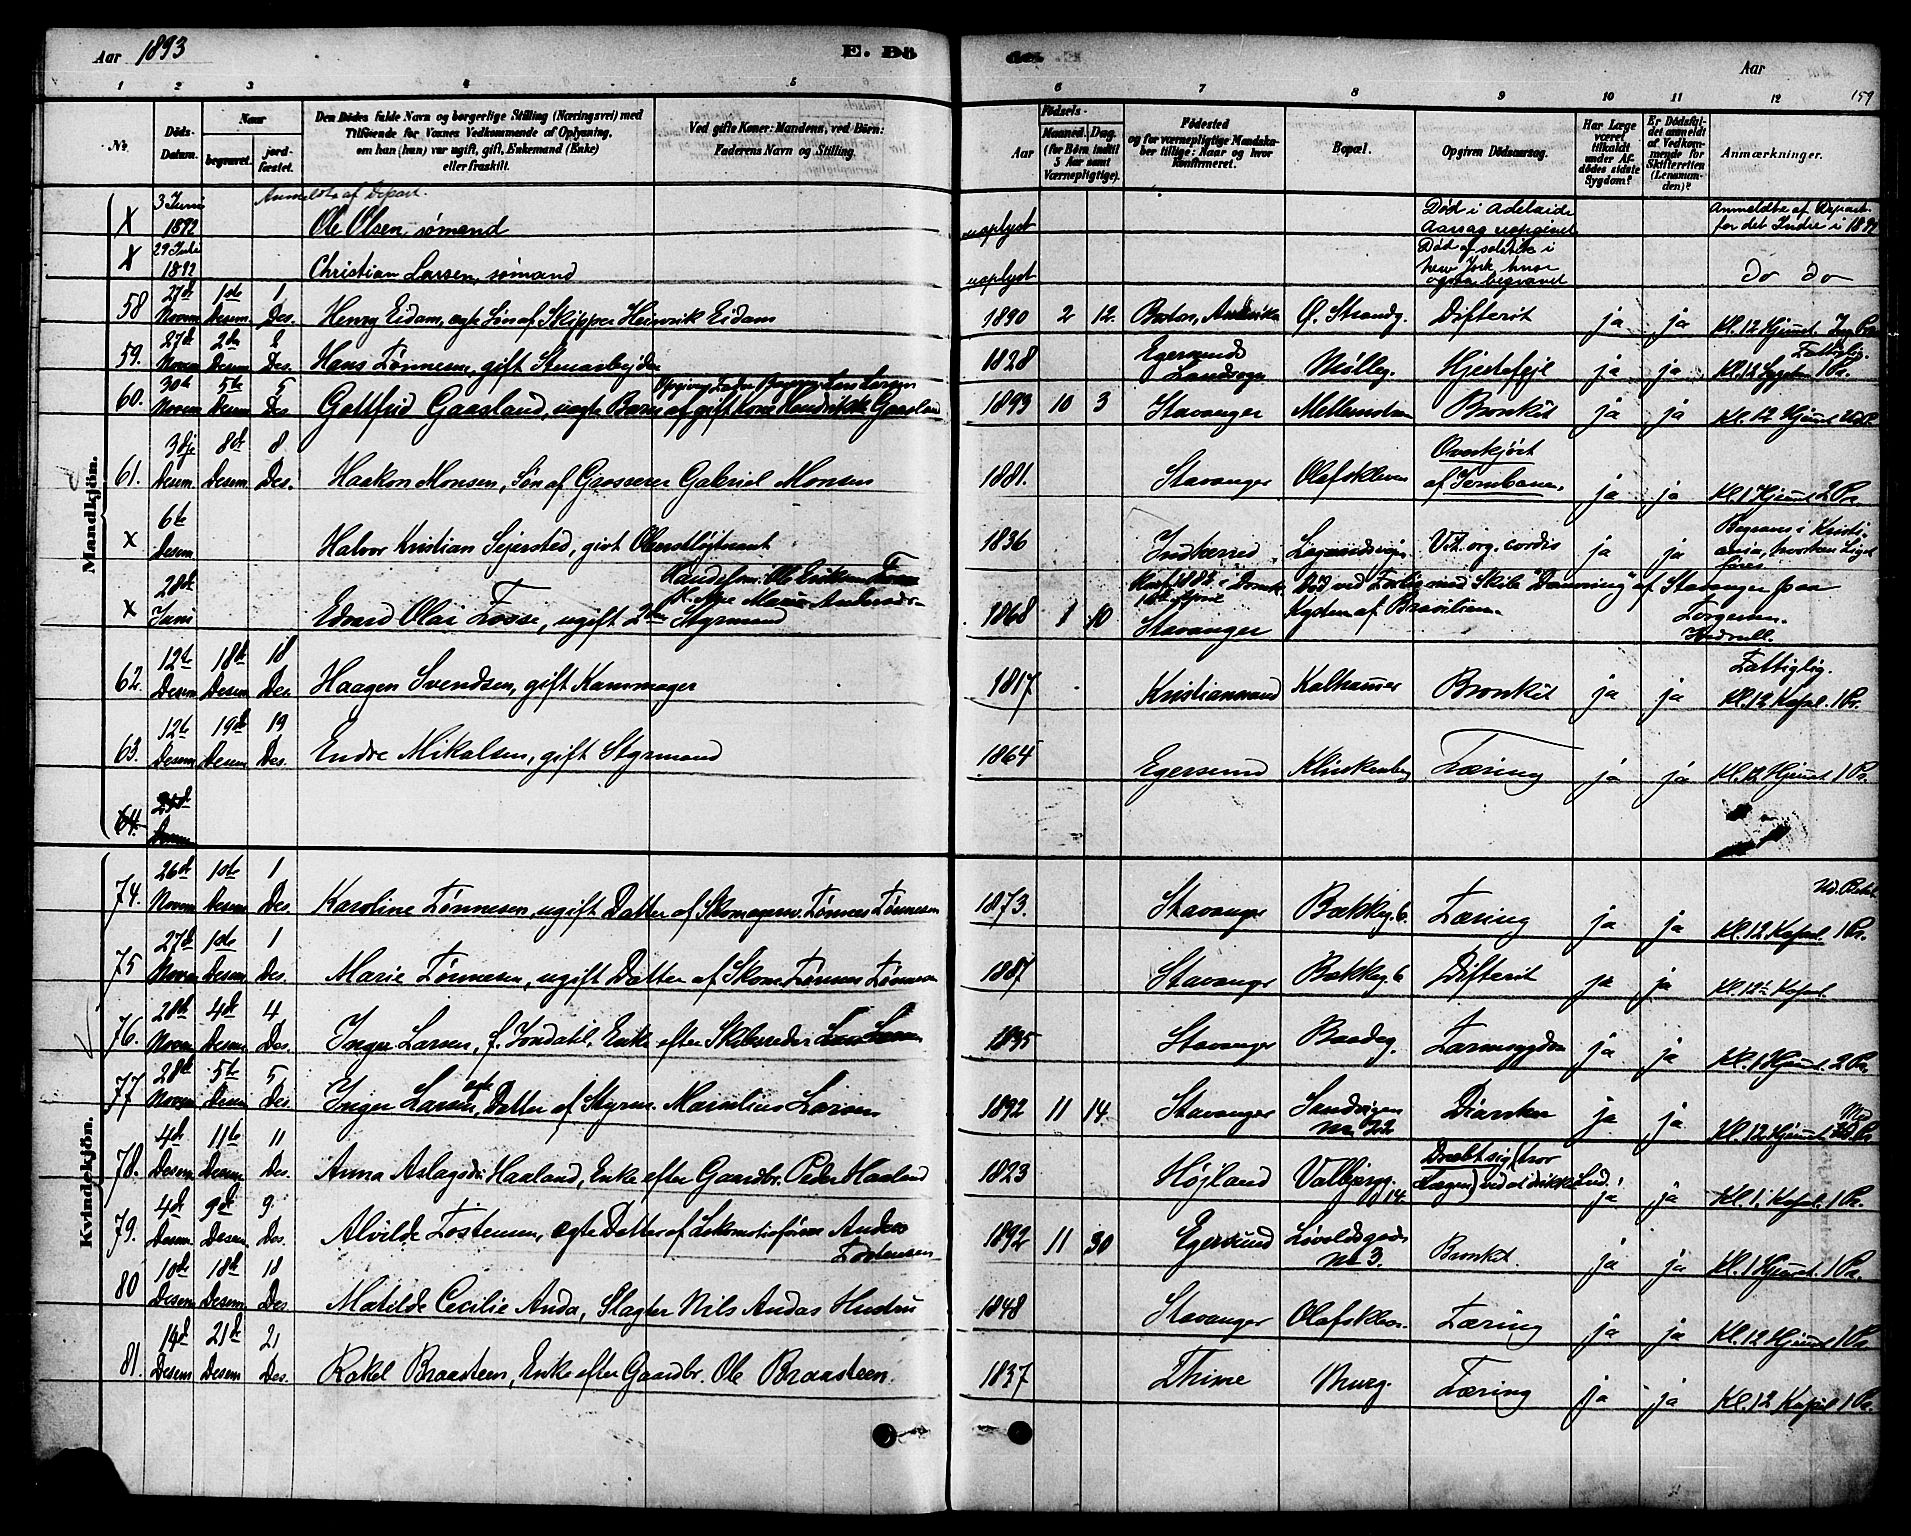 Aar 1893
E. Dö
de.
Aar
159
1 2 3 4 5 6 7 8 9 10 11 12
No.
Döds-Datum.
Naar
begravet.
jordfæstet.
Den Dödes fulde Navn og borgerlige Stilling (Næringsvei) med
Tilföiende for Voxnes Vedkommende af Oplysning,
om han (hun) var ugift, gift, Enkemand (Enke)
eller fraskilt.
Ved gifte Koner: Mandens, ved Börn:
Faderens Navn og Stilling.
Födsels-
Aar
Maaned. Dag.
(for Börn indtil
5 Aar samt
Værnepligtige).
Födested
og for værnepligtige Mandska-
ber tillige: Naar og hvor
konfirmeret.
Bopæl.
Opgiven Dödsaarsag.
Har Læge
været
tilkaldt
under Af-
dödes sidste
Sygdom?
Er Dödsfal-
det anmeldt
af Vedkom-
mende for
Skifteretten
(Lensman-
den)?
Anmærkninger.
Mandkjön.
X 3 Juni 1892 Anmeldt af Depart. Ole Olsen, sømand uoplyst Død i Adelaide Aarsag uopgivet Anmeldte af Depart. for det Indre i 1892
X 29 1892 Christian Larsen, sømand uoplyst Død af i New York, hvor ogsaa begravet do do
58 27de Novem 1ste Desem 1 Des. Henry Eidam, ægte Søn af Skipper Heinrik Eidam 1890 2 12 Ø. Strandg. Difterit ja ja Kl. 12 Hjemmet
59. 27de Novem 2de Desem 2 Des. Hans Tønnesen, gift Stenarbejder 1828 Egersunds Landsogn Mølleg. Hjertefejl ja ja Fattiglig. Kl. 12 1 Pr.
60. 30te Novem 5te Desem 5 Des. Gottfrid Gaasland, uægte Barn af gift Kone Hendrikke Gaasland 1893 10 3 Stavanger Bronkit ja ja Kl. 12 Hjemmet
61. 3dje Desem 8de Desem 8 Des. Haakon Monsen, Søn af Grosserer Gabriel Monsen 1881. Stavanger Olafskleven Overkjørt af Jernbane. ja ja Kl. 1 Hjemmet 2 Pr.
X 6te Desem Halvor Kristian Sejersted, gift Oberstløjtnant 1836 Vit. org. cordis ja ja Begraves i Kristiania, hvorhen Liget føres
X 28de Juni Edvard Olai Tosse, ugift 2den Styrmand Ole Eriksen 1868 1 10 Stavanger Død ved Forlis med Skibet "Dronning" af Stavanger paa Kysten af Brasilien.
62. 12te Desem 18de Desem 18 Des. Haagen Svendsen, gift Kammager 1817 Kristianssand Kalhammer Bronkit ja ja Fattiglig. Kl. 12 Kapel. 1 Pr.
63. 12te Desem 19de Desem 19 Des. Endre Mikalsen, gift Styrmand 1864 Egersund Klinkenberg Tæring ja ja Kl. 12 Hjemmet 1 Pr.
64. Desem
Kvindekjön.
74. 26de Novem 1ste Desem 1 Des. Karoline Tønnesen, ugift Datter af Skomagerm. Tønnes Tønnesen 1873. Stavanger Bækkeg. 6. Tæring ja ja Kl. 12 Kapel. 1 Pr.
75 27de Novem 1ste Desem 1 Des. Marie Tønnesen, ugift Datter af Skom. Tønnes Tønnesen 1887 Stavanger Bækkeg 6 Difterit ja ja Kl. 12 Kapel.
76. 28de Novem 4de Desem 4 Des. Inger Larsen, f. Enke efter Skibsreder Lars Larsen 1835 Stavanger Baadeg. Tarmsygdom ja ja Kl. 1 Hjemmet. 2 Pr.
77 28de Novem 5te Desem 5 Des. Inger Larsen, ægte Datter af Styrm. Marselius Larsen 1892 11 14. Stavanger Sandvigen No. 22 ja ja Kl. 12 Hjemmet
78. 4de Desem 11te Desem 11 Des. Anna Aslagsd. Haaland, Enke efter Gaardbr. Peder Haaland 1823 Højland Valbjerg. 14 Dræbt sig (tror Lægen) ved at drikke Lud. ja ja Kl. 1. Kapel. 1 Pr.
79. 4de Desem 9de Desem 9. Des. Alvilde Tostensen, ægte Datter af Lokomotivfører Anders Tostensen 1892 11 30 Egersund Løvoldsgade No. 3. Bronkit. ja ja Kl. 1 Hjemmet. 1 Pr.
80 10de Desem 18de Desem 18 Des. Matilde Cecilie Anda, Slagter Nils Andas Hustru 1848 Stavanger Olafsklev. Tæring ja ja Kl. 12 Hjemmet 1 Pr.
81. 14de Desem 21de Desem 21 Des. Rakel Braasteen, Enke efter Gaardbr. Ole Braasteen. 1837 Thime Murg. Tæring ja ja Kl. 12 Kapel 1 Pr.